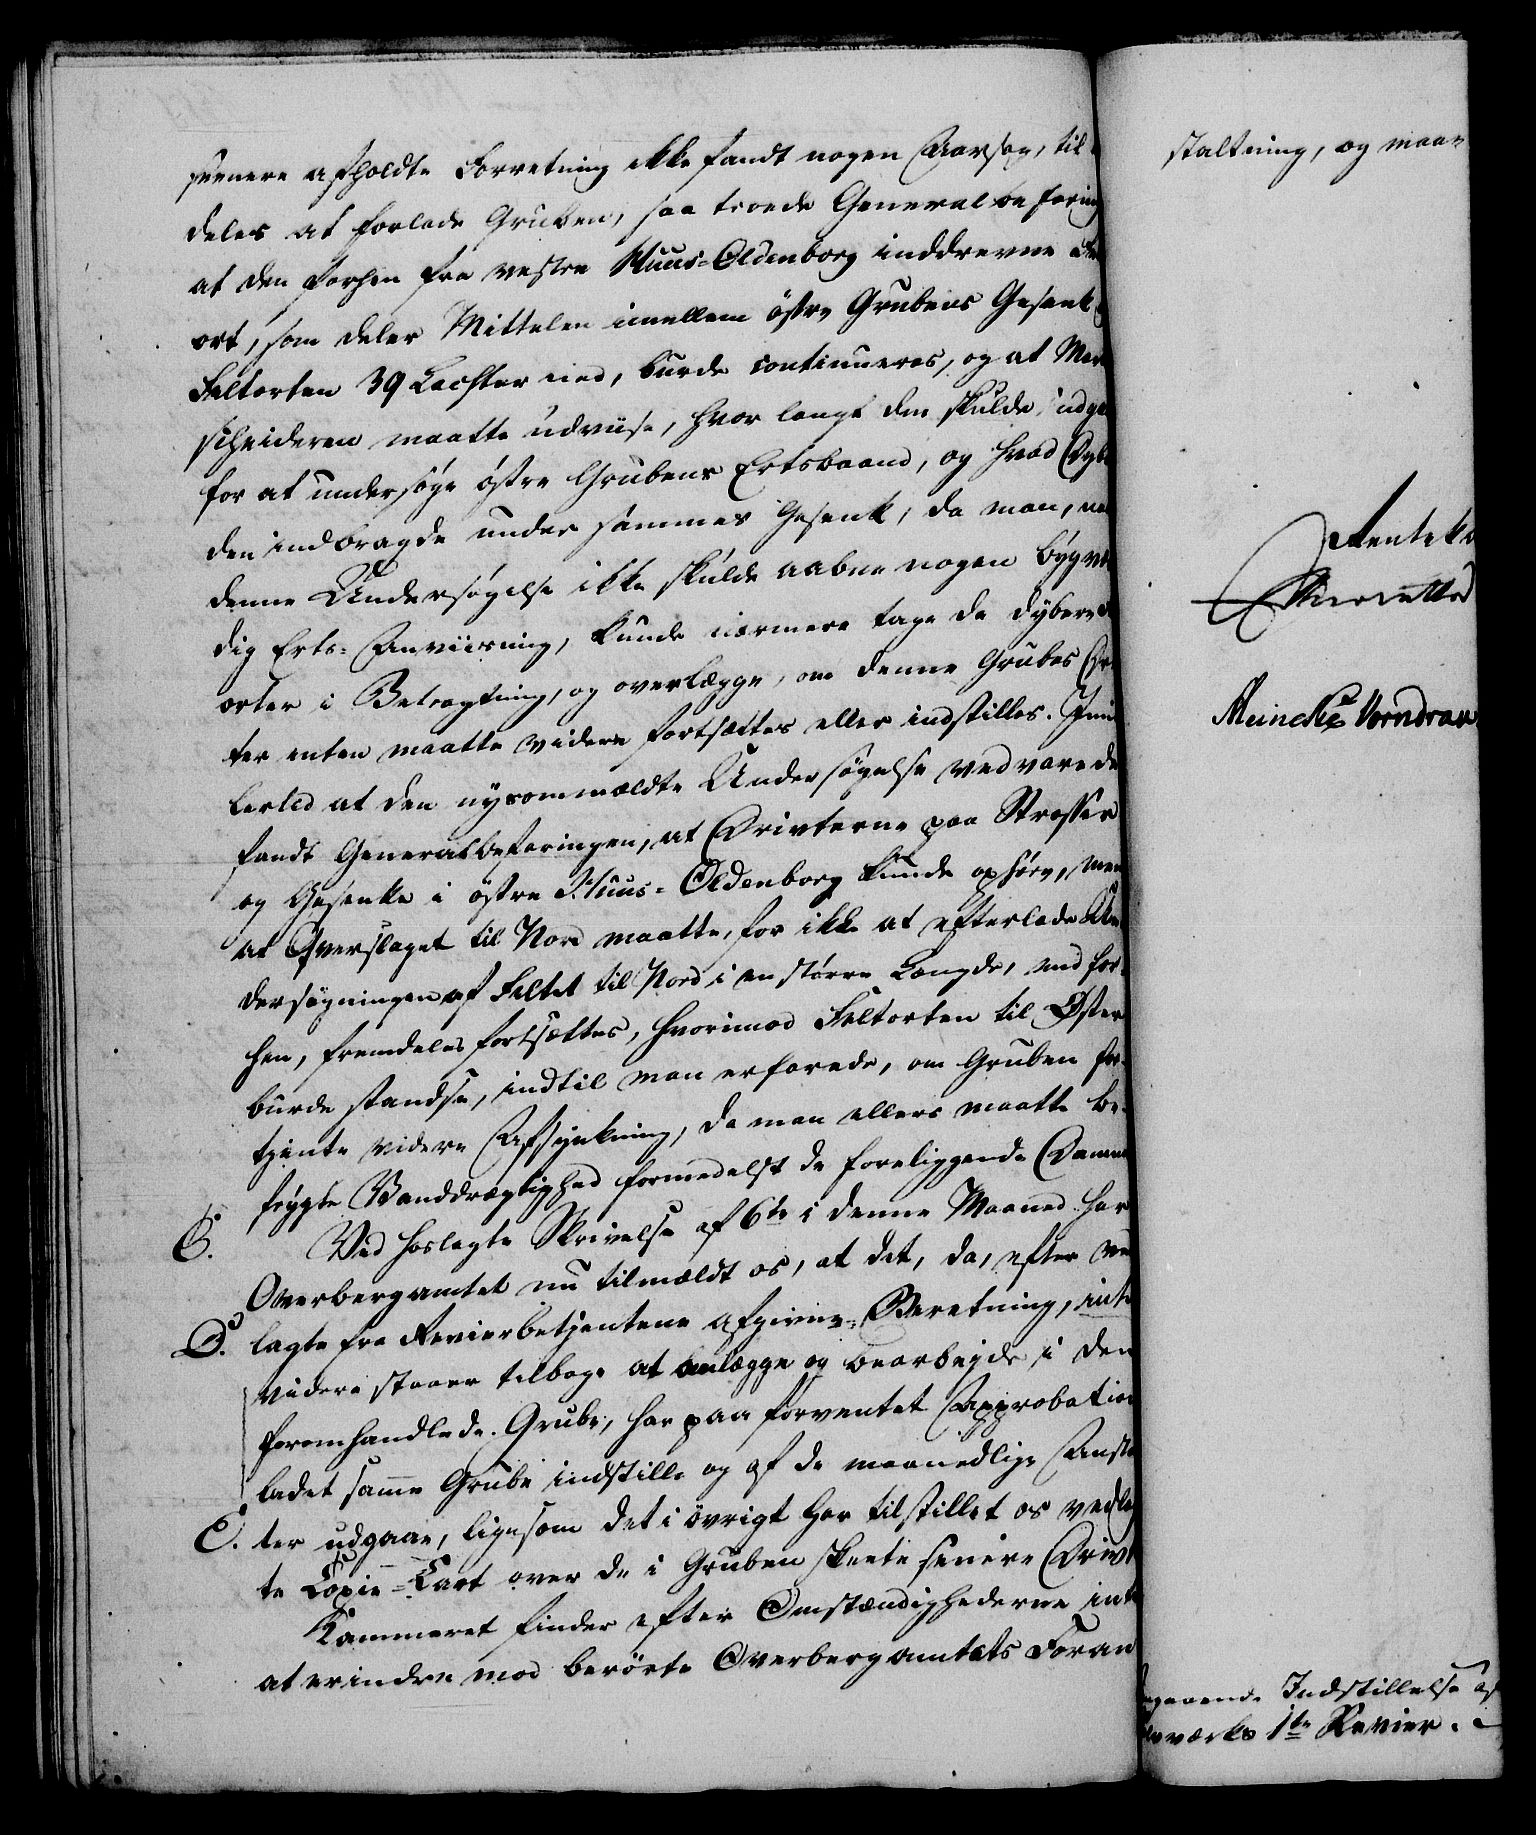 seenere afholdte Forretning ikke fandt nogen Aarsag, til
deles at forlade Gruben, saa troede Generalbefaring
at den forhen fra vestre Huus-Oldenborg inddrevne
ort, som deler Mittelen imellem östre Grubens Gesenk
Feltorten 39 Lachter ind, burde continueres, og at Mar
scheideren maatte udviise, hvor langt den skulde indga
for at undersøge østre Grubens Ertsbaand, og hvad Dyb
den indbragde under sammes Gesenk, da man,
denne Undersøgelse ikke skulde aabne nogen bÿgvær
dig Erts-Anviisning, kunde nærmere tage de dybere
orter i Betragtning, og overlægge, om denne Grubes
ter enten maatte videre fortsættes eller indstilles. Imi
lertid at den nysommældte Undersøgelse vedvarede
fandt Generalbefaringen, at Drivterne paa Strosser
og Gesenke i østre Huus-Oldenborg kunde ophøre, men
at Qverslaget til Nord maatte, for ikke at efterlade Un
dersøgningen af Feltet til Nord i en större Længde, end for-
hen, fremdeles fortsættes, hvorimod Feltorten til Øster
burde standse, indtil man erfarede, om Gruben for-
tjente videre Afsynkning, da man ellers maatte be-
frygte Vanddrægtighed formedelst de foreliggende Damme
C. Ved hoslagte Skrivelse af 6te i denne Maaned har
Overbergamtet nu tilmældt os, at det, da, efter ved
D. lagte fra Revierbetjentene afgivne Beretning, intet
videre staaer tilbage at anlægge og bearbejde i den
foromhandlede Grube, har paa forventet Approbation
ladet samme Grube indstille og af de maanedlige Ansta
E. ter udgaae, ligesom det i øvrigt har tilstillet os vedlag
te Copie-Cart over de i Gruben skeete senere Drivt
Kammeret finder efter Omstændighederne intet
at erindre mod berörte Overbergamtets Foran
staltning, og maa-
Rentek
Meincke Vorndran
Indstillelse af
værks 1te Revier.